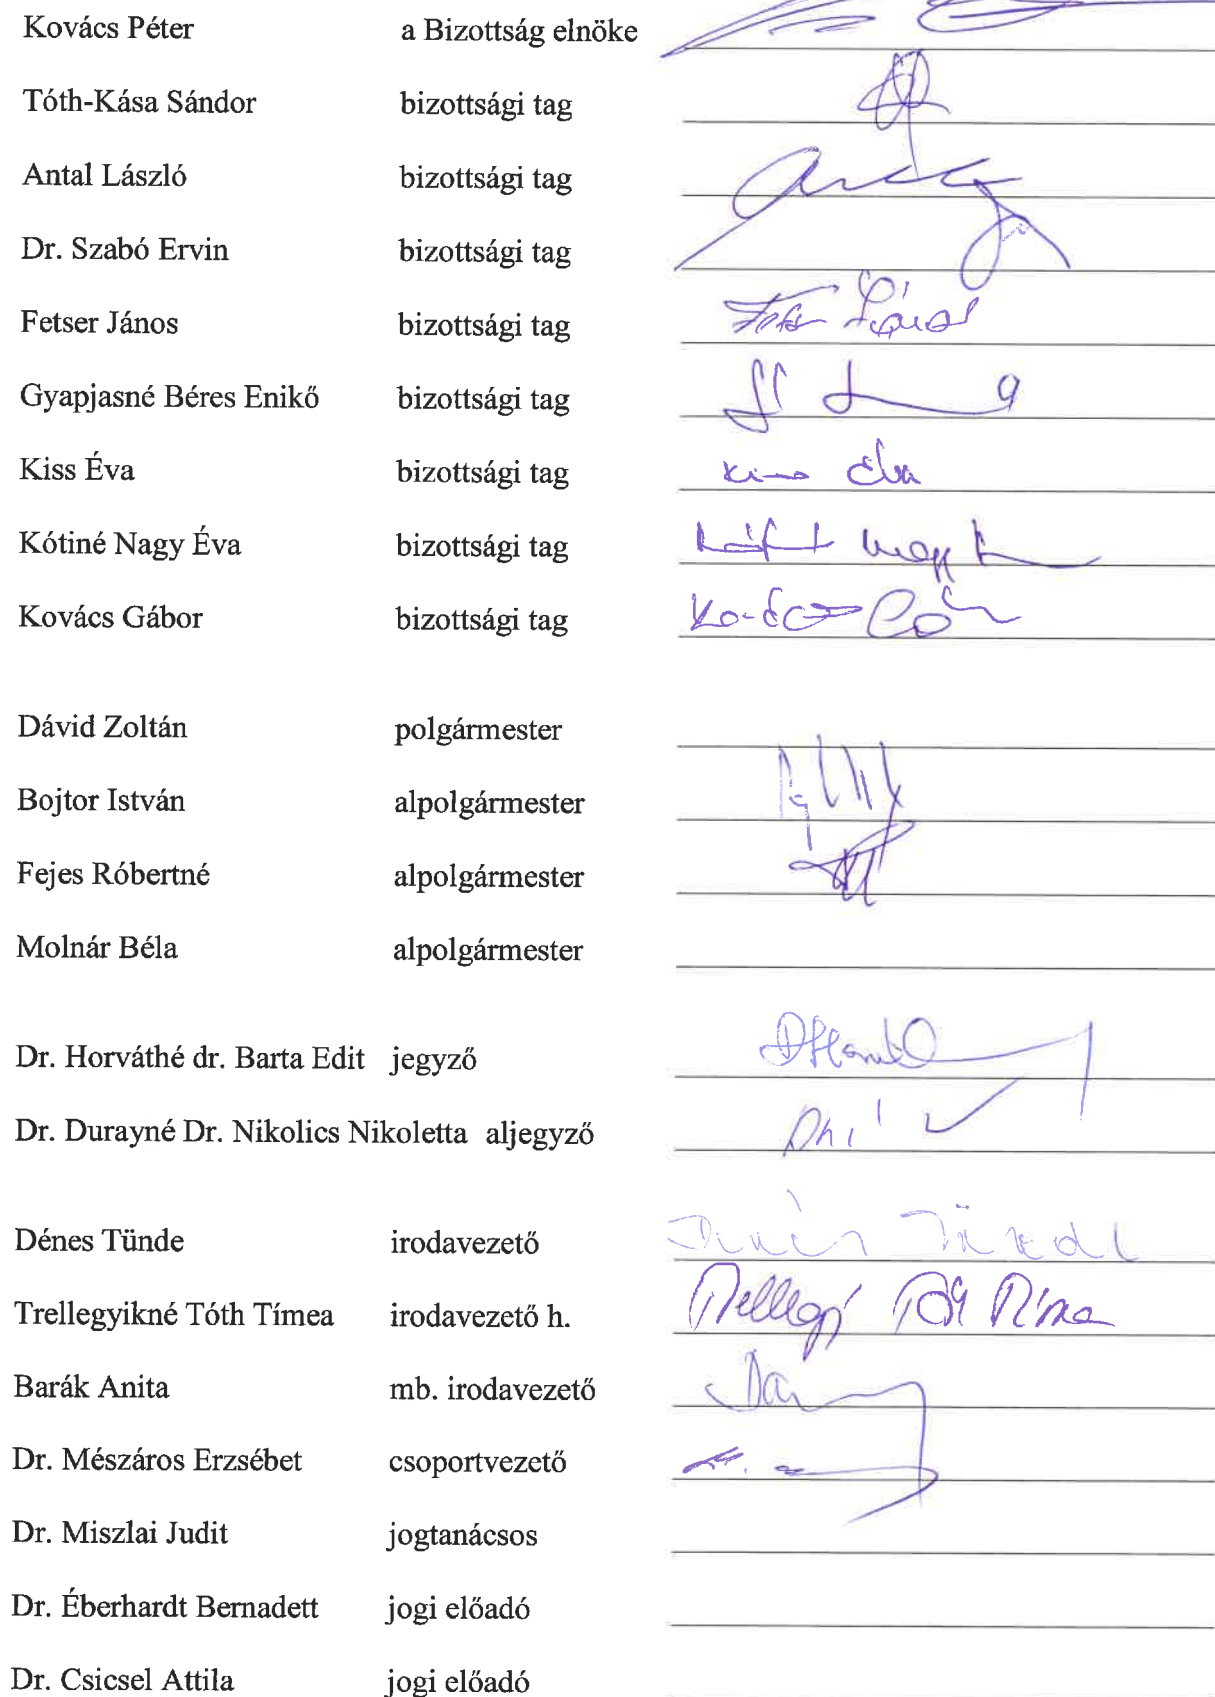 Kovács Péter a Bizottság elnöke
Tóth-Kása Sándor bizottsági tag
Antal László bizottsági tag
Dr. Szabó Ervin bizottsági tag
Fetser János bizottsági tag
Gyapjasné Béres Enikő bizottsági tag
Kiss Éva bizottsági tag Kiss Éva
Kótiné Nagy Éva bizottsági tag
Kovács Gábor bizottsági tag
Dávid Zoltán polgármester
Bojtor István alpolgármester
Fejes Róbertné alpolgármester
Molnár Béla alpolgármester
Dr. Horváthé dr. Barta Edit jegyző
Dr. Durayné Dr. Nikolics Nikoletta aljegyző
Dénes Tünde irodavezető Dénes Tünde
Trellegyikné Tóth Tímea irodavezető h.
Barák Anita mb. irodavezető
Dr. Mészáros Erzsébet csoportvezető
Dr. Miszlai Judit jogtanácsos
Dr. Éberhardt Bernadett jogi előadó
Dr. Csicsel Attila jogi előadó